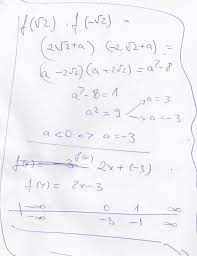 f(√2) · f(-√2) =
(2√2+a) (-2√2+a) =
(a-2√2)(a+2√2) = a²-8
a²-8=1
a²=9 → a=3
→ a=-3
a<0 => a=-3
f(x) 2x+(-3)
f(x)= 2x-3
-∞ 0 1 ∞
-∞ -3 -1 ∞